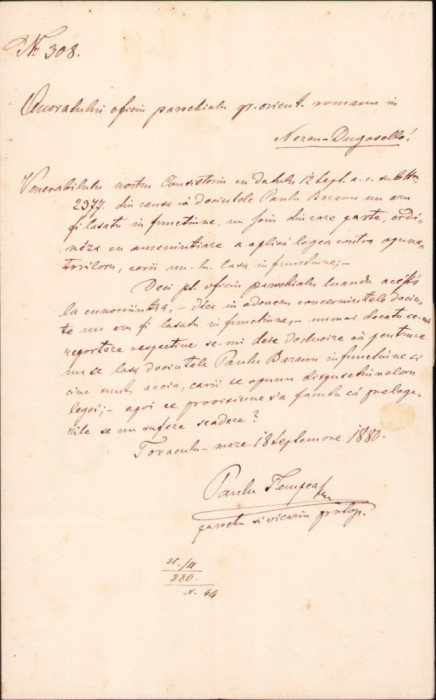 Nr. 308.
Onoratului oficiu parochialu gr. orient. romanu in
Nerau Dugosello!
Venerabilulu nostru Consistoriu cu datulu 17 Sept. a. c. sub Nr.
2377. din causa că docintele Paulu Baranu nu aru
fi lasatu in functiune, un join din care parte, ordi-
néza cu amenintiare a aplicá legea contra opuna-
torilor, carii nu-lu lasa in functiune;—
Deci pt. oficiu parochialu luandu acést'a
la cunoscintia, — déca in adeveru concernintele docin-
te nu va fi lasatu in functiune, — numai decatu se-mi
reportese respective se-mi deie deslucire că pentruce
nu se lasa docintele Paulu Baranu in functiune si
cine sunt aceia, carii se opunu dispusetiuneloru
legei; — apoi ce provisiune s'a facutu că prelege-
rile se nu sufere scadere?
Toraculu-mare 18 Septemvre 1880.
Paulu
parochu si vicariu protop.
21./IX
880.
N. 64